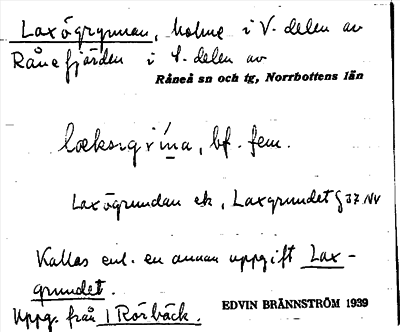 Laxögrynnan, holme i V. delen av
Rånefjärden i S. delen av
Råneå sn och tg, Norrbottens län
bf. fem.
Laxögrundan ek, Laxgrundet §J7 NV
Kallas enl. en annan uppgift Lax-
grundet.
Uppg. från 1 Rörbäck.
EDVIN BRÄNNSTRÖM 1939